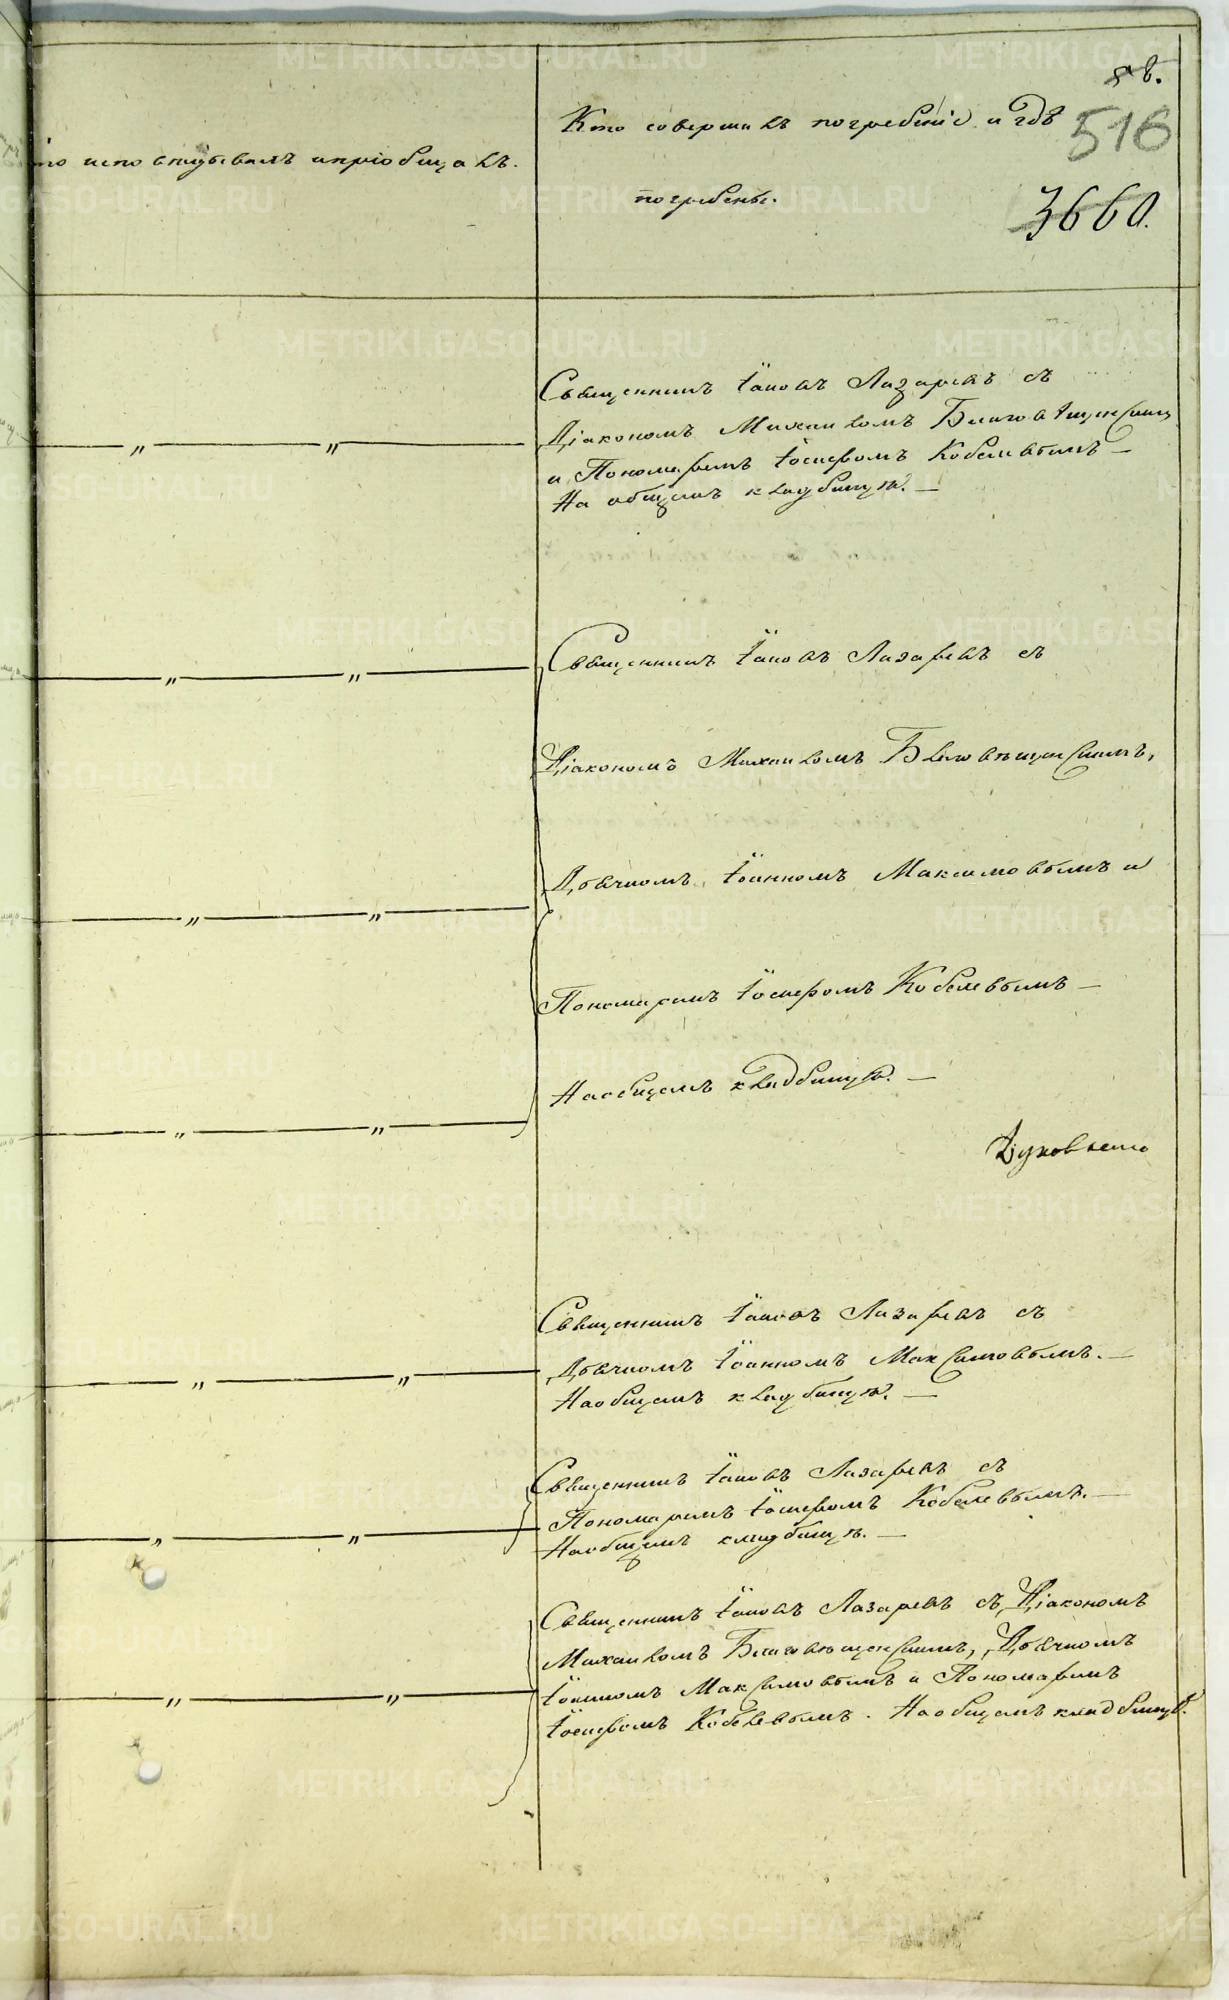 516
Кто совершалъ погребеніе и гдѣ
то исповѣдывалъ и пріобщалъ.
погребены.
3660.
Священникъ Іаковъ Лазаревъ съ
Діакономъ Михаиломъ Благовѣщенскимъ
и Пономаремъ Іосифомъ Кобелевымъ —
На общемъ кладбищѣ. —
Священникъ Іаковъ Лазаревъ съ
Діакономъ Михаиломъ Благовѣщенскимъ,
Дьячкомъ Іоанномъ Максимовымъ и
Пономаремъ Іосифомъ Кобелевымъ —
На общемъ кладбищѣ. —
Духовнаго
Священникъ Іаковъ Лазаревъ съ
Дьячкомъ Іоанномъ Максимовымъ. —
На общемъ кладбищѣ. —
Священникъ Іаковъ Лазаревъ съ
Пономаремъ Іосифомъ Кобелевымъ. —
На общемъ кладбищѣ. —
Священникъ Іаковъ Лазаревъ съ Діакономъ
Михаиломъ Благовѣщенскимъ, Дьячкомъ
Іоанномъ Максимовымъ и Пономаремъ
Іосифомъ Кобелевымъ. На общемъ кладбищѣ.
METRIKI.GASO-URAL.RU